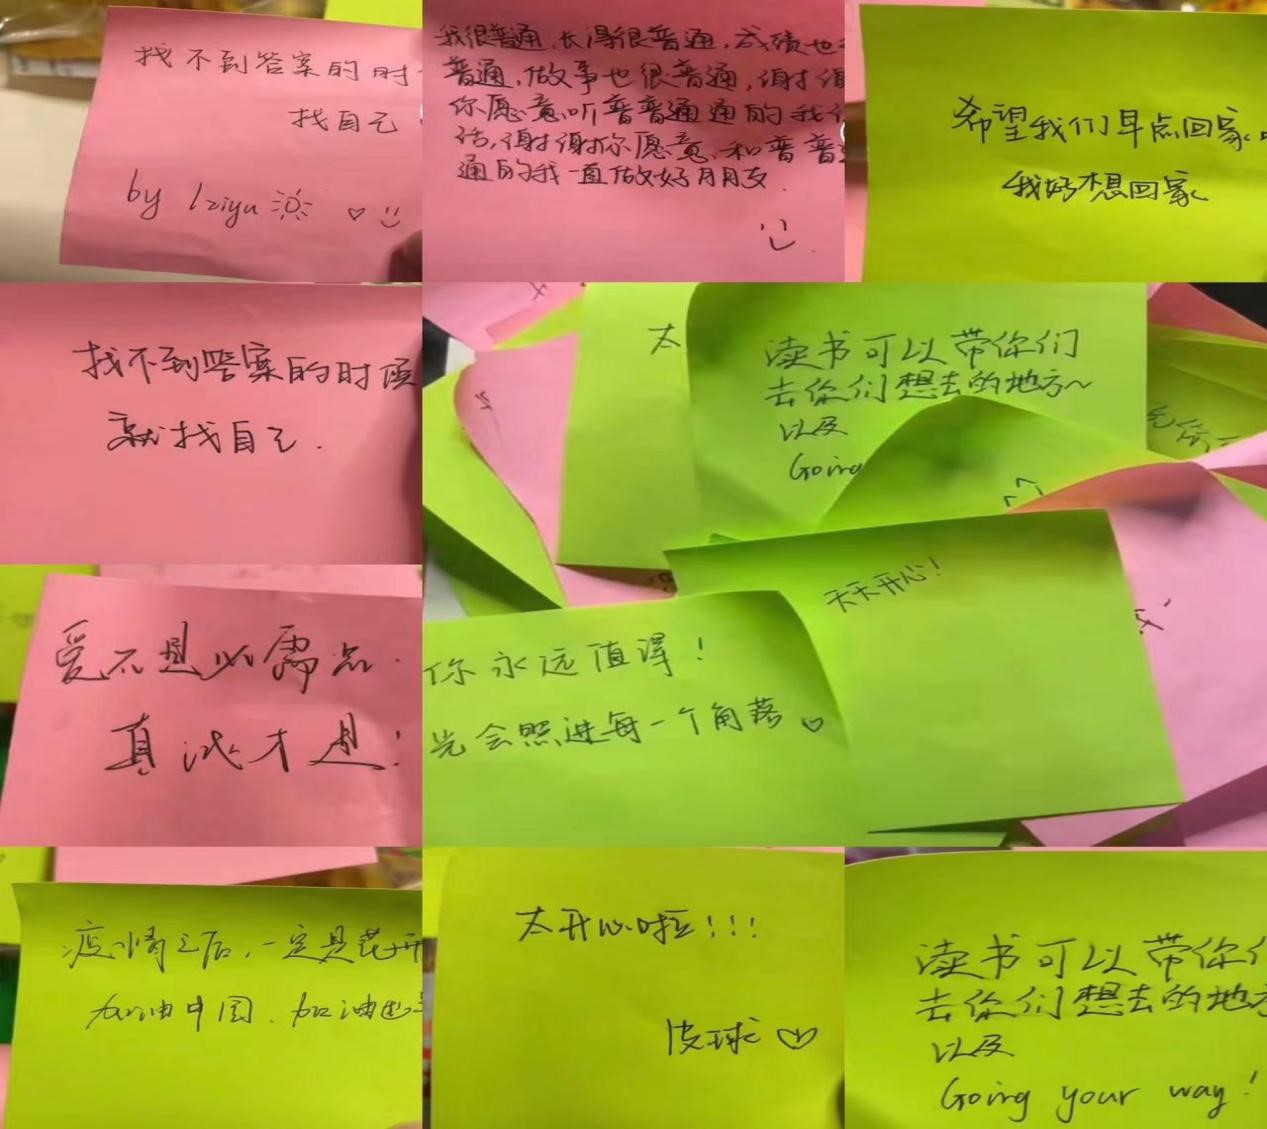 找不到答案的时
找自己
by lziyu
我很普通,长得很普通,成绩也
普通,做事也很普通,谢谢
你愿意听普普通通的我
话,谢谢你愿意和普普
通的我一直做好朋友.
希望我们早点回家
我好想回家
找不到答案的时候
就找自己.
太
读书可以带你们
去你们想去的地方~
以及
Going
天天开心!
你永远值得!
光会照进每一个角落
爱不是必需品.
真诚才是!
疫情之后,一定是花开
加油中国.加油
太开心啦!!!
皮球
读书可以带你们
去你们想去的地方
以及
Going your way!